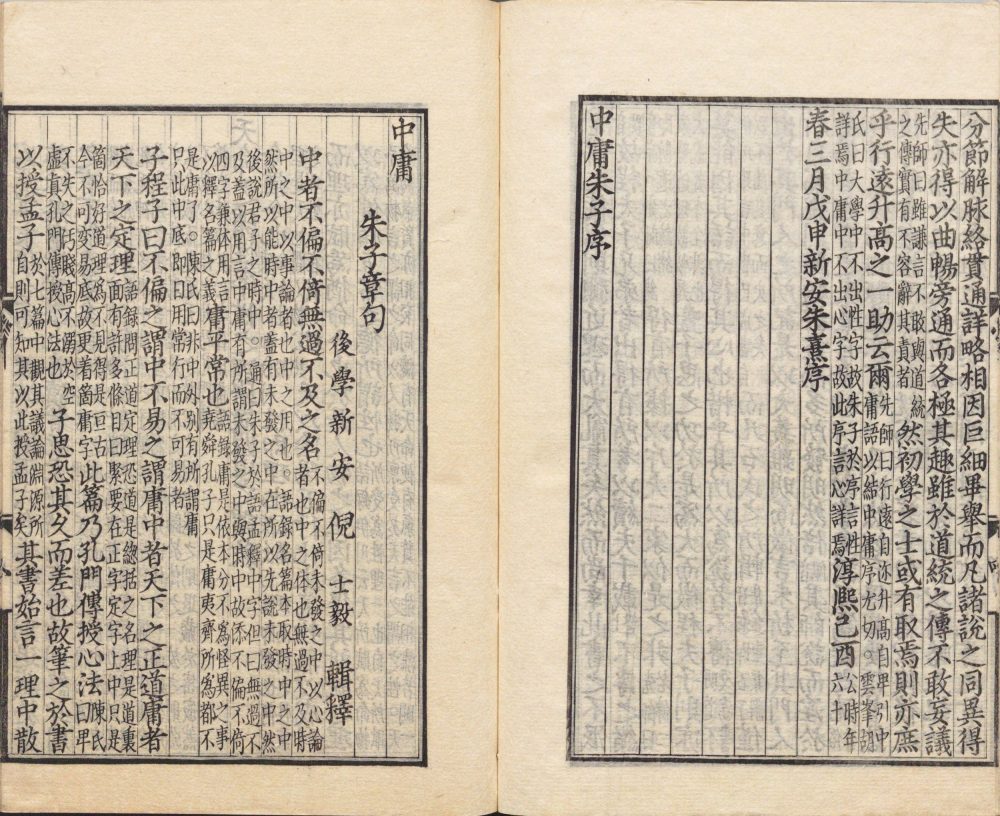 分節解脉絡貫通詳略相因巨細畢舉而凡諸說之同異得
失亦得以曲暢旁通而各極其趣雖於道統之傳不敢妄議
先師曰雖謙言不敢與道統
之傳實有不容辭其責者
然初學之士或有取焉則亦庶
乎行遠升高之一助云爾
先師曰行遠自迩升高自卑引中
庸語以結中庸序尤切。雲峯胡
氏曰大學中不出性字故朱子於序言性
詳焉中庸中不出心字故此序言心詳焉
淳熙己酉
公時年
六十
春三月戊申新安朱熹序
中庸朱子序
中庸
朱子章句
後學新安倪士毅輯釋
中者不偏不倚無過不及之名
不偏不倚未發之中以心論
者也中之体也無過不及時
中之中以事論者也中之用也。語録名篇本取時中之中
然所以能時中者蓋有未發之中在所以先說未發之中然
後說君子之時中。通曰朱子於語孟釋中字但曰無過不
及蓋以用言中庸有所謂未發之中與時中故添不偏不倚
四字兼体用言
以釋名篇之義
庸平常也
語録庸是依本分不爲怪異之事
堯舜孔子只是庸夷齊所爲都不
是庸了。陳氏曰非中外別有所謂庸
只此中底即日用常行而不可易者
子程子曰不偏之謂中不易之謂庸中者天下之正道庸者
天下之定理
語録問正道定理恐道是總括之名理是道裏
面有許多條目曰緊要在正字定字上中只是
箇恰好道理爲見得是亘古
今不可變易底故更着箇庸字
此篇乃孔門傳授心法
陳氏
曰卑
不失之汚賤高不溺於空
虛真孔門傳授心法也
子思恐其久而差也故筆之於書
以授孟子
於七篇中觀其議論淵源所
自則可知其以此授孟子矣
其書始言一理中散